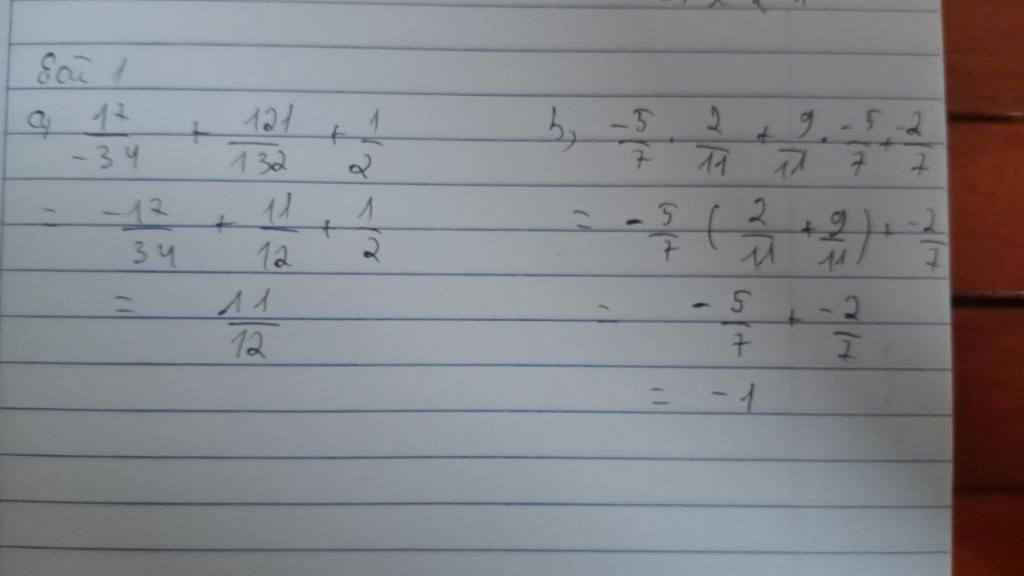 Bài 1
a, 17/-34 + 121/132 + 1/2
= -17/34 + 11/12 + 1/2
= 11/12
b, -5/7 . 2/11 + 9/11 . -5/7 + -2/7
= -5/7 (2/11 + 9/11) + -2/7
= -5/7 + -2/7
= -1